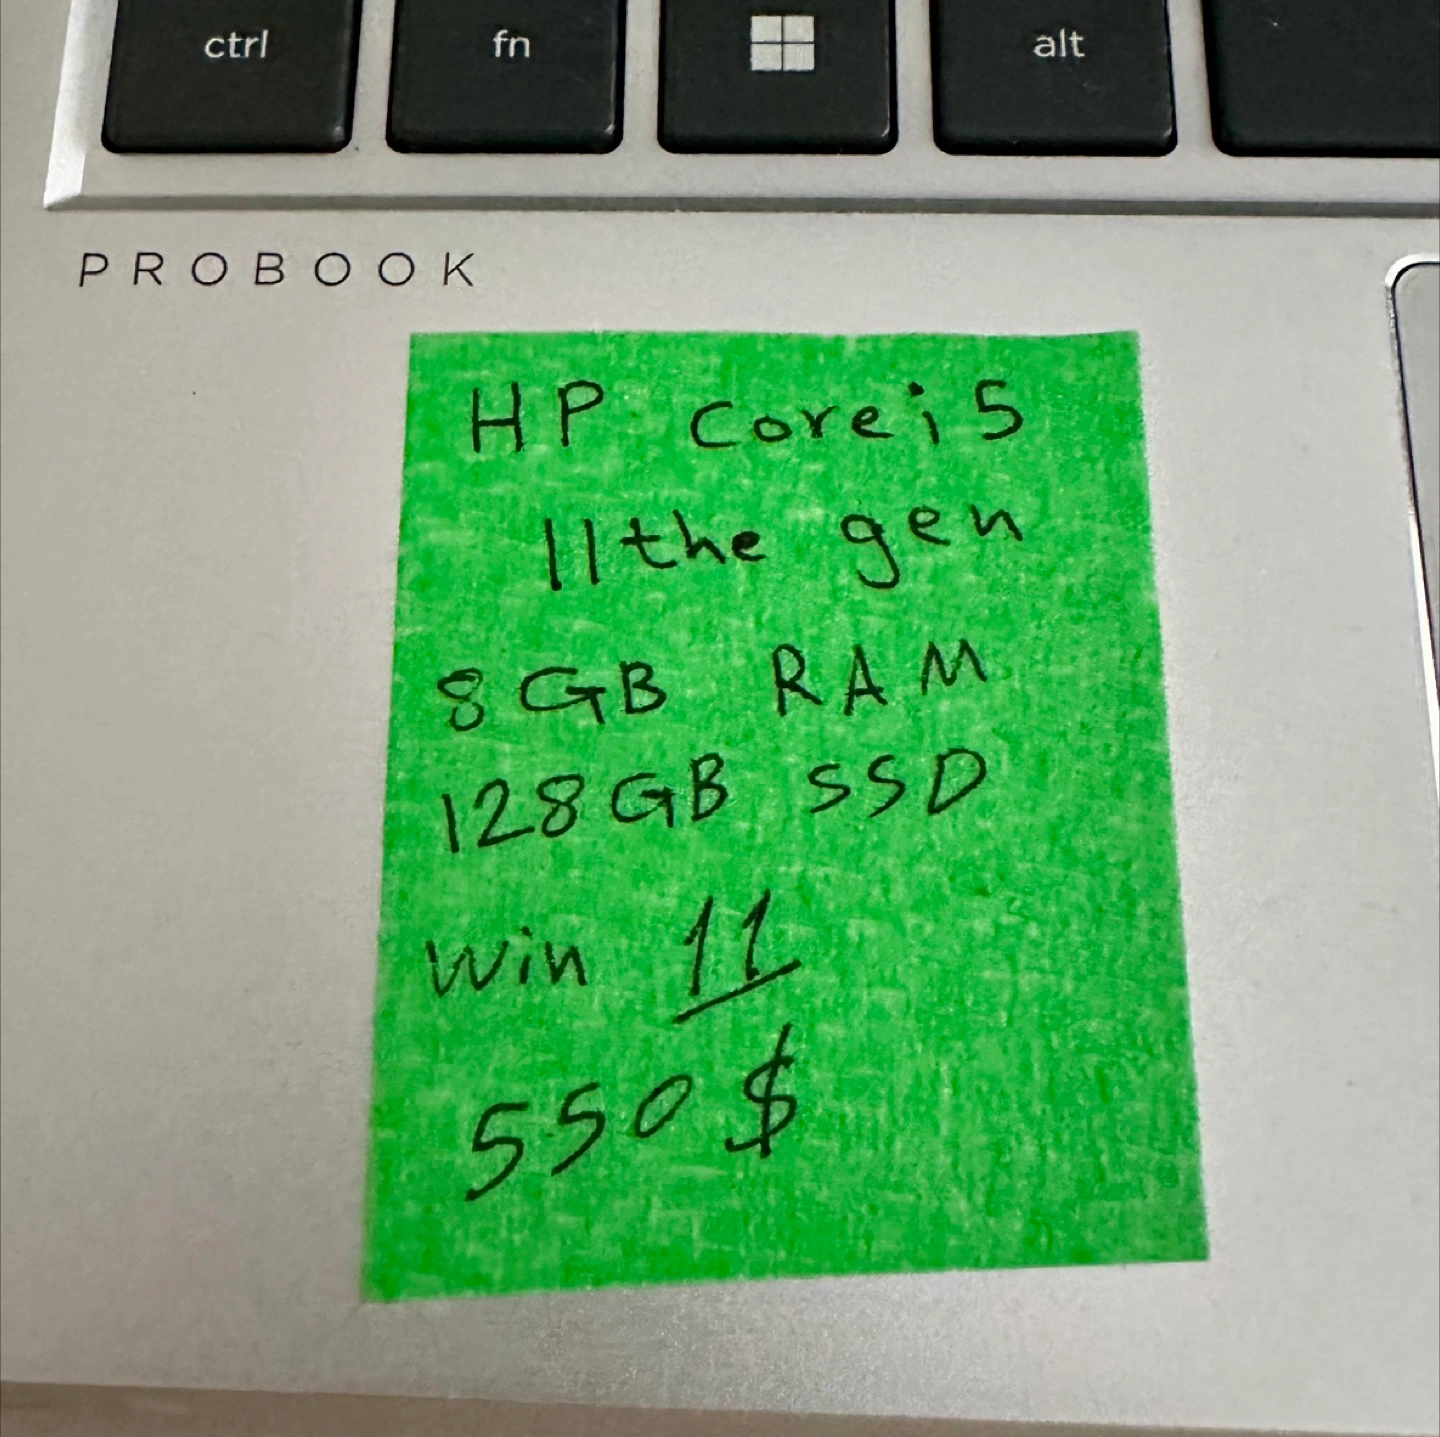 ctrl fn alt
PROBOOK
HP Corei5
11the gen
8GB RAM
128GB SSD
Win 11
550$